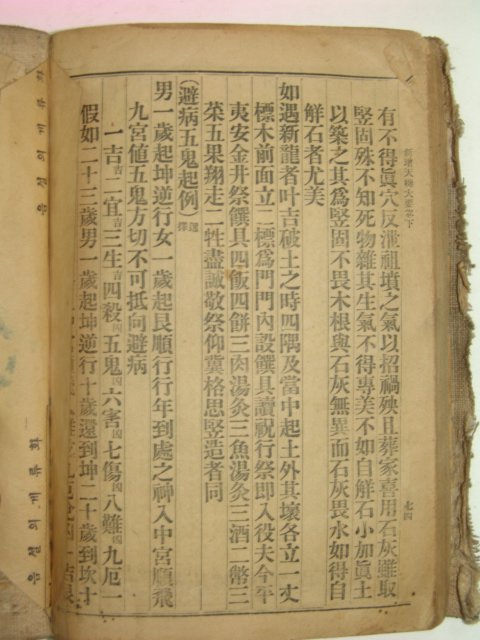 新增天機大要下
七四
有不得眞穴反泄祖墳之氣以招禍殃且葬家喜用石灰雖取
竪固殊不知死物雜其生氣不得專美不如自解石小加眞土
以築之其爲竪固不畏木根與石灰無異而石灰畏水如得自
解石者尤美
如遇新龍者叶吉破土之時四隅及當中起土外其壞各立一丈
標木前面立二標爲門門內設饌具讀祝行祭即入役夫令平
夷安金井祭饌具四飯四餅三肉湯灸三魚湯灸三酒二幣三
菜五果翔走二牲盡誠敬祭仰冀格思竪造者同
(避病五鬼起例)
男一歲起坤逆行女一歲起艮順行行年到處之神入中宮順飛
九宮値五鬼方切不可抵向避病
一吉吉二宜吉三生吉四殺凶五鬼凶六害凶七傷凶八難凶九厄一
假如二十三歲男一歲起坤逆行十歲還到坤二十歲到坎十